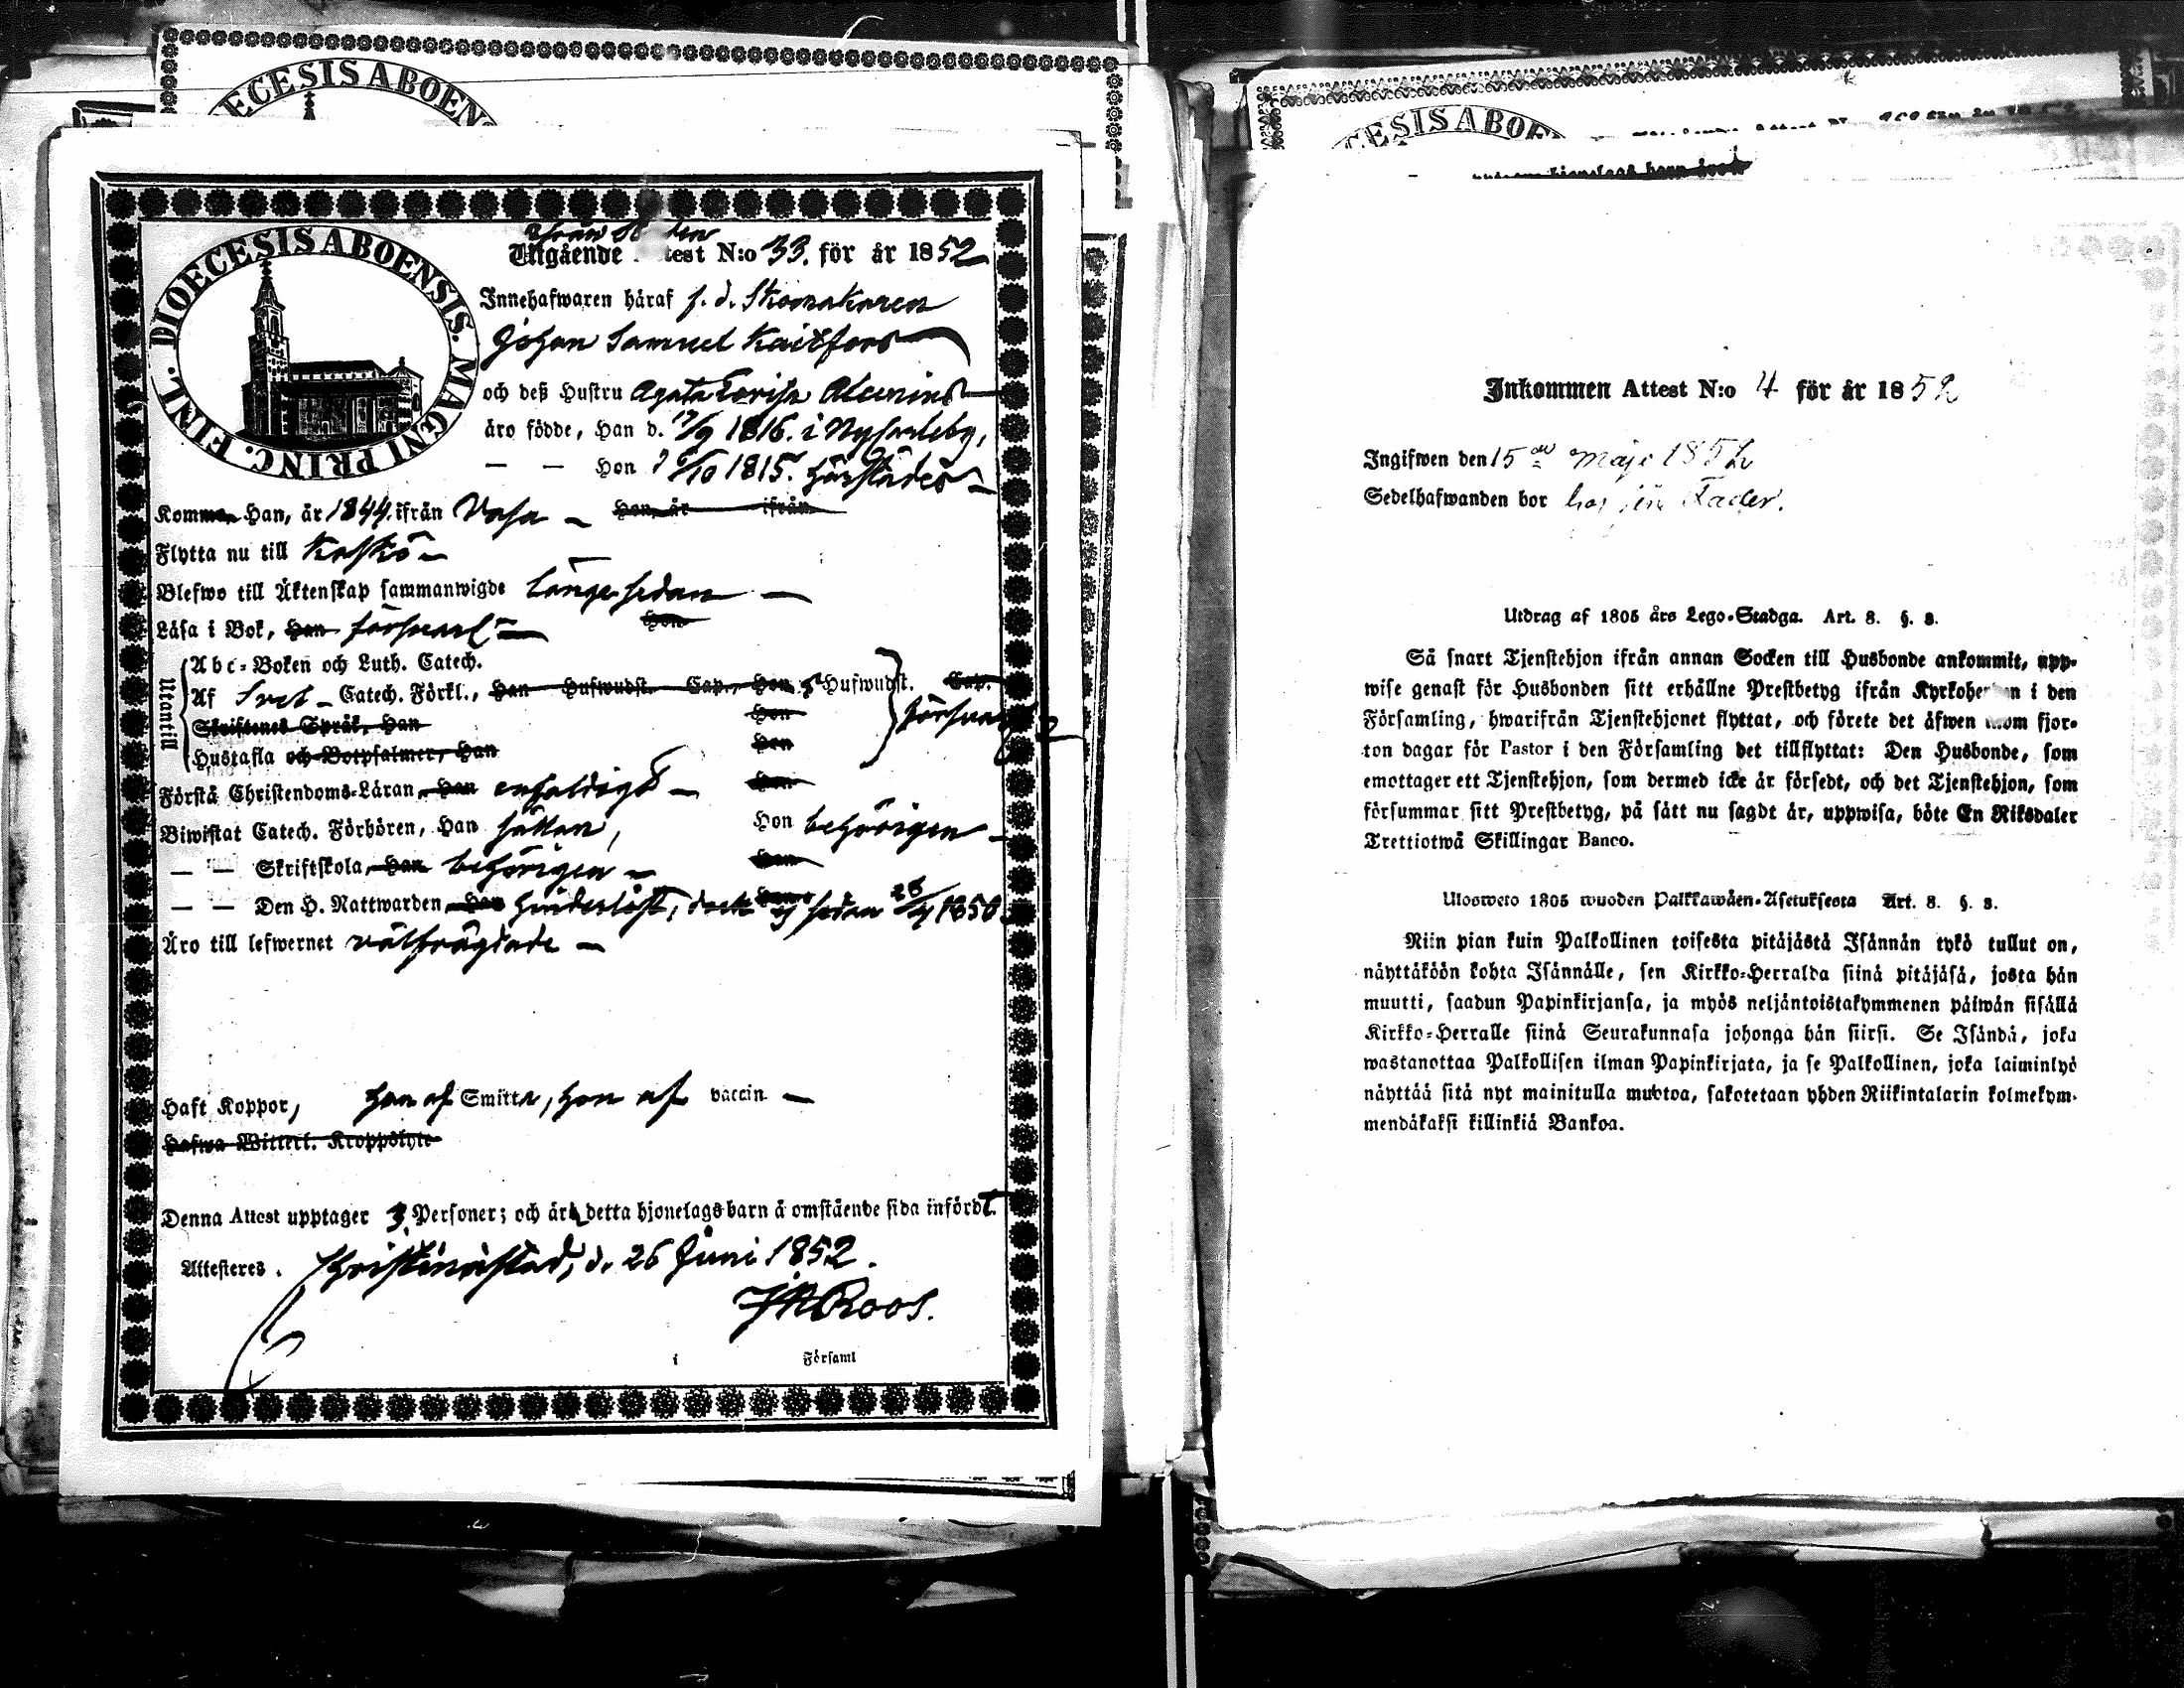 DIOECESIS ABOEN
DIOECESIS ABOENSIS. MAGNI PRINC. FINL.
ifrån
Utgående test N:o 33. för år 1852
Innehafwaren häraf f. d. Skomakaren
Johan Samuel Kaitfors
och deß Hustru Agata Lovisa
äro födde, Han d. 17/9 1816. i Nykarleby,
— — Hon d 6/10 1815. härstädes —
Komma Han, år 1844. ifrån Vasa — Hon, år ifrån
Flytta nu till Kaskö —
Blefwo till Äktenskap sammanwigde länge sedan —
Läsa i Bok, Han försvarl. — Hon
Utantill
Abc-Boken och Luth. Catech.
Af Sveb — Catech. Förkl., Han Hufwudst. Cap., Hon 5 Hufwudst. Cap.
Skriftenes Språk, Han Hon
försvarl
Hustafla och Botpsalmer, Han Hon
Förstå Christendoms-Läran, Han enfaldigt — Hon
Biwistat Catech. Förhören, Han sällan, Hon behörigen —
— — Skriftskola, Han behörigen — Hon
— — Den H. Nattwarden, Han hinderlöst, dock Hon ej sedan 28/4 1850.
Äro till lefwernet välfrägdade —
Haft Koppor, han af Smitta, hon af vaccin —
Hafwa Witterl. Kroppslyte
Denna Attest upptager 3 Personer; och är detta hjonelags barn å omstående sida infördt.
Attesteres. Christinestad, d. 26 Juni 1852.
Roos.
i Församl
ECESIS ABOE
Inkommen Attest N:o 4 för år 1852
Ingifwen den 15de Maji 1852
Sedelhafwanden bor hos sin Fader.
Utdrag af 1805 års Lego-Stadga. Art. 8. §. 8.
Så snart Tjenstehjon ifrån annan Socken till Husbonde ankommit, upp-
wise genast för Husbonden sitt erhållne Prestbetyg ifrån Kyrkoher n i den
Församling, hwarifrån Tjenstehjonet flyttat, och förete det äfwen inom fjor-
ton dagar för Pastor i den Församling det tillflyttat: Den Husbonde, som
emottager ett Tjenstehjon, som dermed icke är försedt, och det Tjenstehjon, som
försummar sitt Prestbetyg, på sätt nu sagdt är, uppwisa, böte En Riksdaler
Trettiotwå Skillingar Banco.
Ulosweto 1805 wuoden Palkkawäen-Asetuksesta Art. 8. §. 8.
Niin pian kuin Palkollinen toisesta pitäjästä Isännän tykö tullut on,
näyttäköön kohta Isännälle, sen Kirkko-Herralda siinä pitäjäsä, josta hän
muutti, saadun Papinkirjansa, ja myös neljäntoistakymmenen päiwän sisällä
Kirkko-Herralle siinä Seurakunnasa johonga hän siirsi. Se Isändä, joka
wastanottaa Palkollisen ilman Papinkirjata, ja se Palkollinen, joka laiminlyö
näyttää sitä nyt mainitulla muotoa, sakotetaan yhden Riikintalarin kolmekym-
mendäkaksi killinkiä Bankoa.